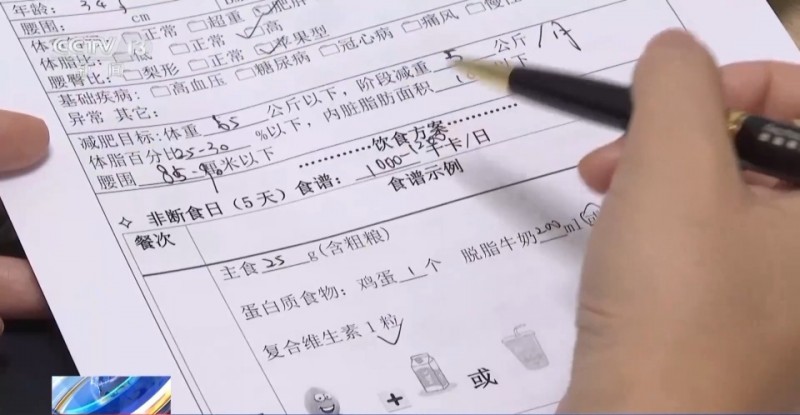 CCTV 13
年龄: 34岁
腰围: cm
正常 超重 肥胖
体脂比: 正常 高
腰臀比: 梨形 正常 苹果型
基础疾病: 高血压 糖尿病 冠心病 痛风 慢性
异常 其它:
减肥目标: 体重 65 公斤以下, 阶段减重 5 公斤/月
体脂百分比 25-30 %以下, 内脏脂肪面积 以下
腰围 85-90 米以下
饮食方案
非断食日(5天)食谱: 1000-1200 千卡/日
食谱示例
餐次
主食 25 g(含粗粮)
蛋白质食物: 鸡蛋 1 个 脱脂牛奶 200 ml
复合维生素1粒
或